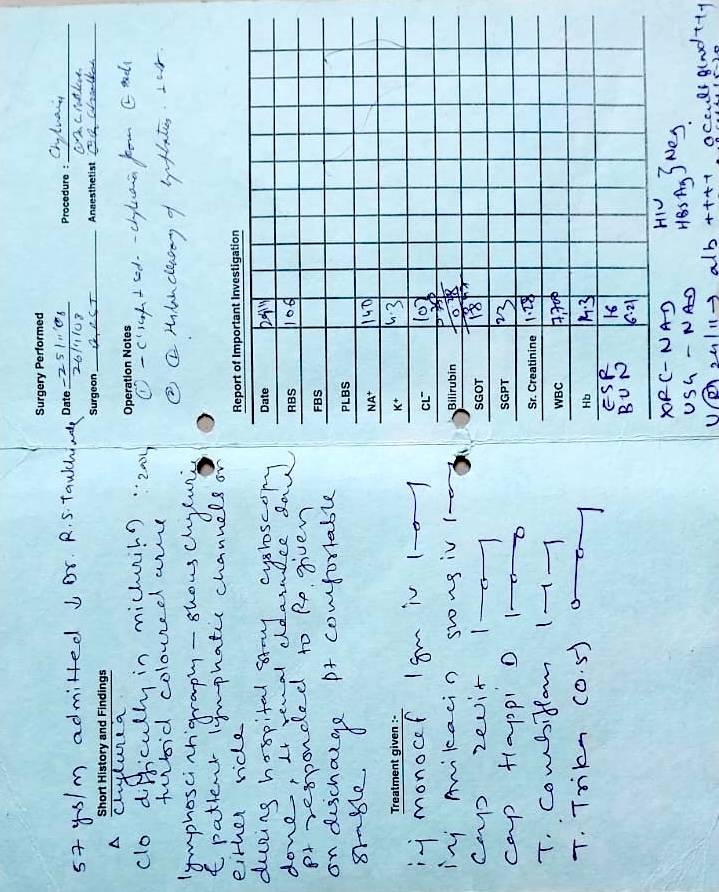 57 yrs/m admitted ↓ Dr. R.S.
Short History and Findings
Δ Chylurea
c/o difficulty in micturition
turbid coloured urine
lymphoscintigraphy - shows chyluria
patient lymphatic channels on
either side
during hospital stay cystoscopy
done, Lt renal clearance done
pt responded to Rx given
on discharge pt comfortable
stable
Treatment given :-
inj monocef 1gm iv 1-0-1
inj Amikacin 500mg iv 1-0-1
Cap zevit 1-0-1
Cap Happi D 1-0-0
T. Combiflam 1-1-1
T. Trika (0.5) 0-0-1
Surgery Performed
Date - 25/11/08 Procedure : Chyluria
26/11/08
Surgeon Anaesthetist
Operation Notes
① - chyluria from
② of lymphatics
Report of Important Investigation
Date 24/11
RBS 106
FBS
PLBS
NA+ 140
K+ 4.3
CL- 103
Bilirubin
SGOT 18
SGPT 23
Sr. Creatinine 1.28
WBC 7,700
Hb 14.3
ESR 16
BUN 6.21
XRC - NAD HIV
USG - NAD HBsAg } Neg.
U/R 24/11 → alb ++++ occult blood +++